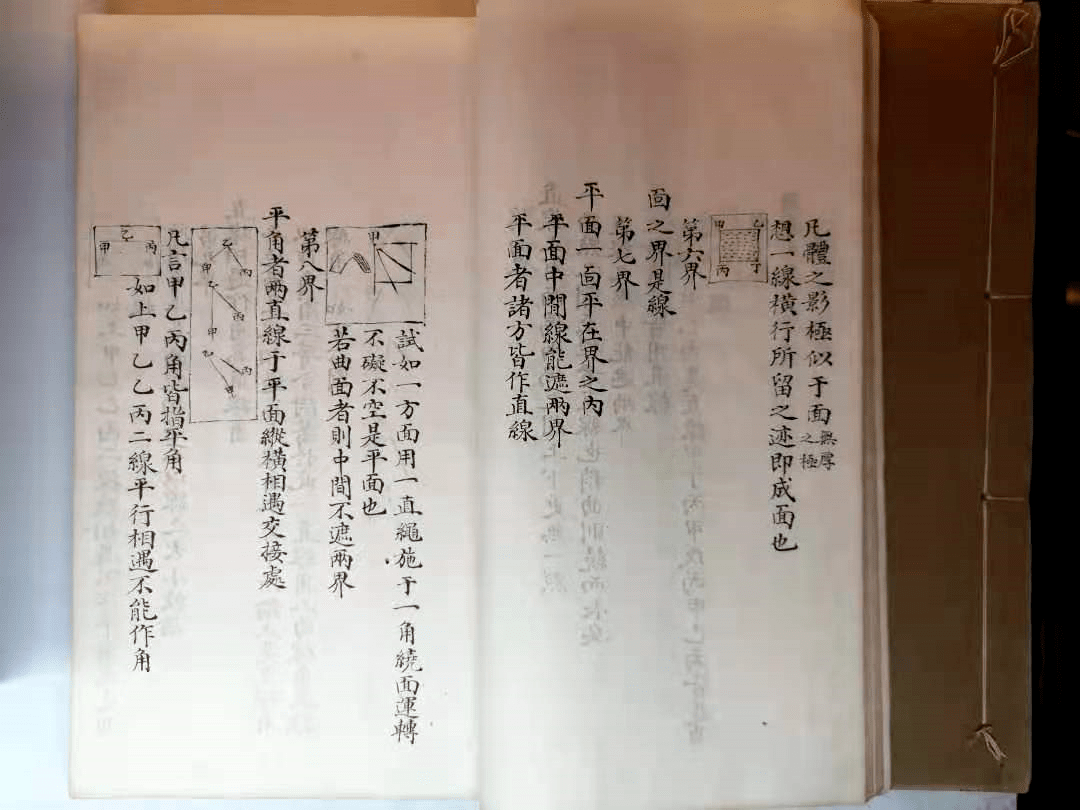 凡體之影極似于面無厚之極
想一線橫行所留之迹即成面也
甲 乙
丙 丁
第六界
面之界是線
第七界
平面一面平在界之內
平面中間線能遮兩界
平面者諸方皆作直線
試如一方面用一直繩施于一角繞面運轉
不礙不空是平面也
若曲面者則中間不遮兩界
甲
第八界
平角者兩直線于平面縱橫相遇交接處
乙
甲 丙
乙
丙
甲
乙
丙
甲
凡言甲乙丙角皆指平角
如上甲乙乙丙二線平行相遇不能作角
乙
甲 丙